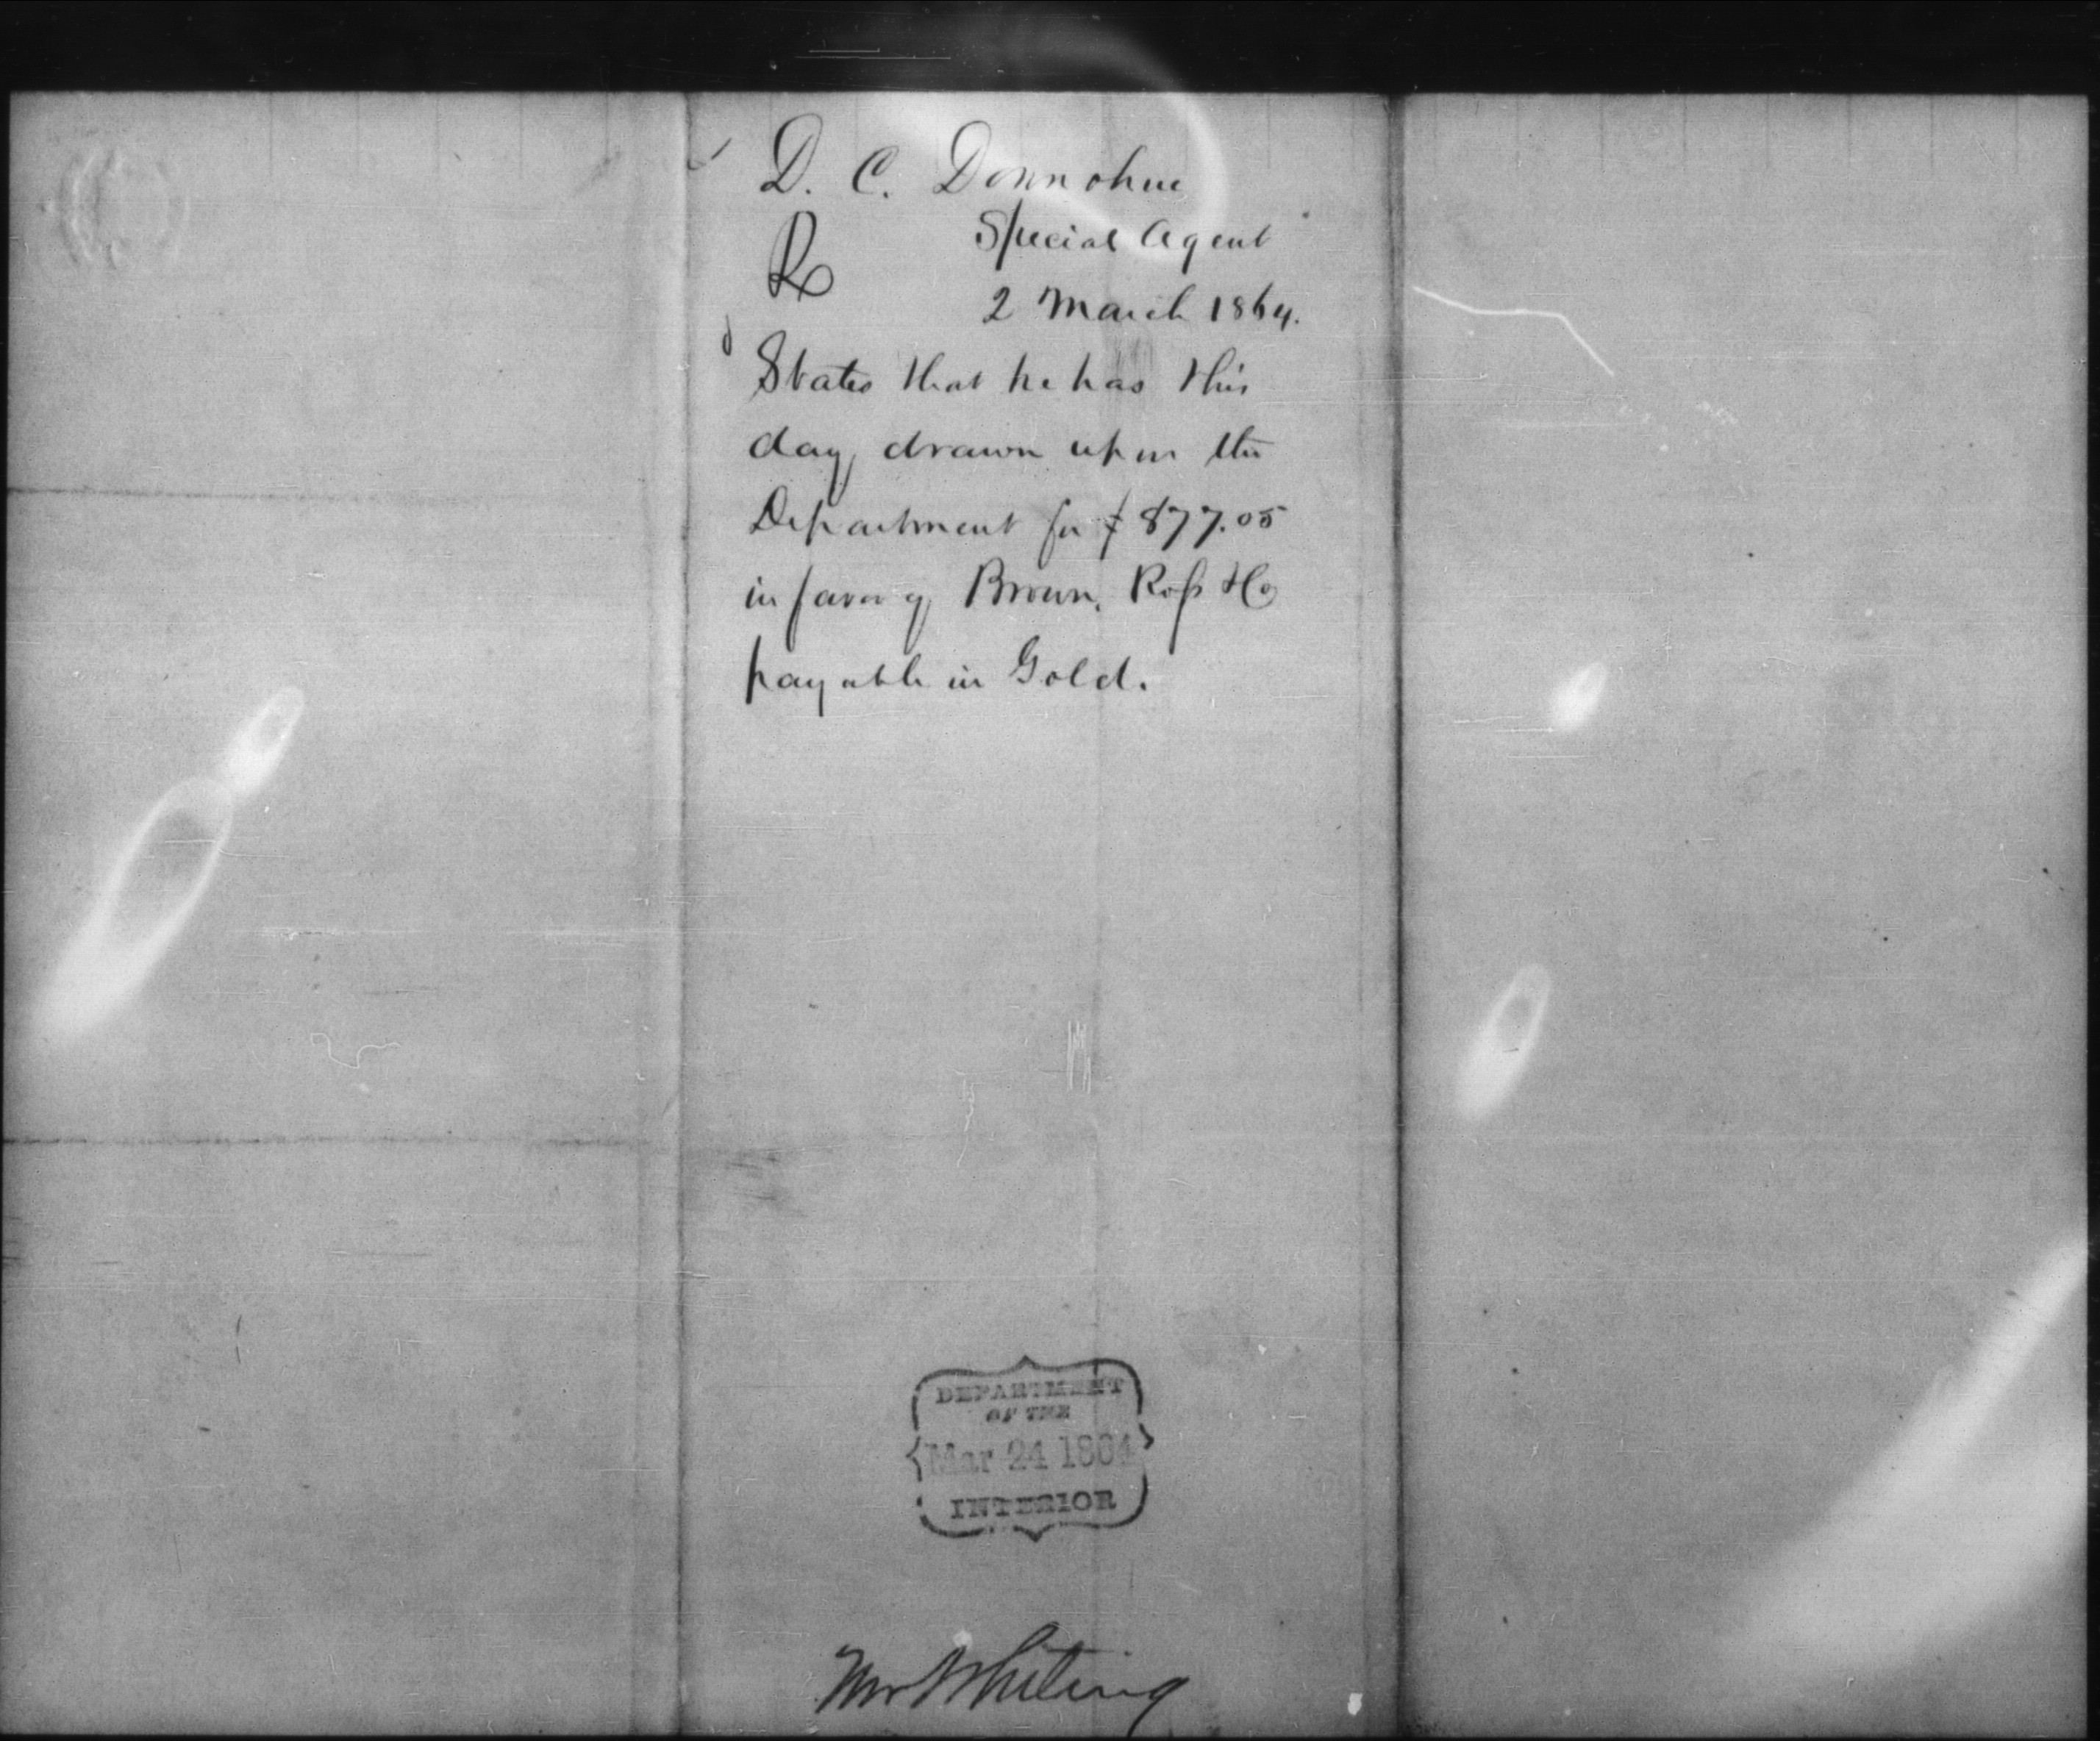 D. C. Donnohue
Special Agent
R
2 March 1864.
States that he has this
day drawn upon the
Department for $877.05
in favor of Brown, Ross & Co
payable in Gold.
DEPARTMENT
OF THE
Mar 24 1864
INTERIOR
Mr Whiting